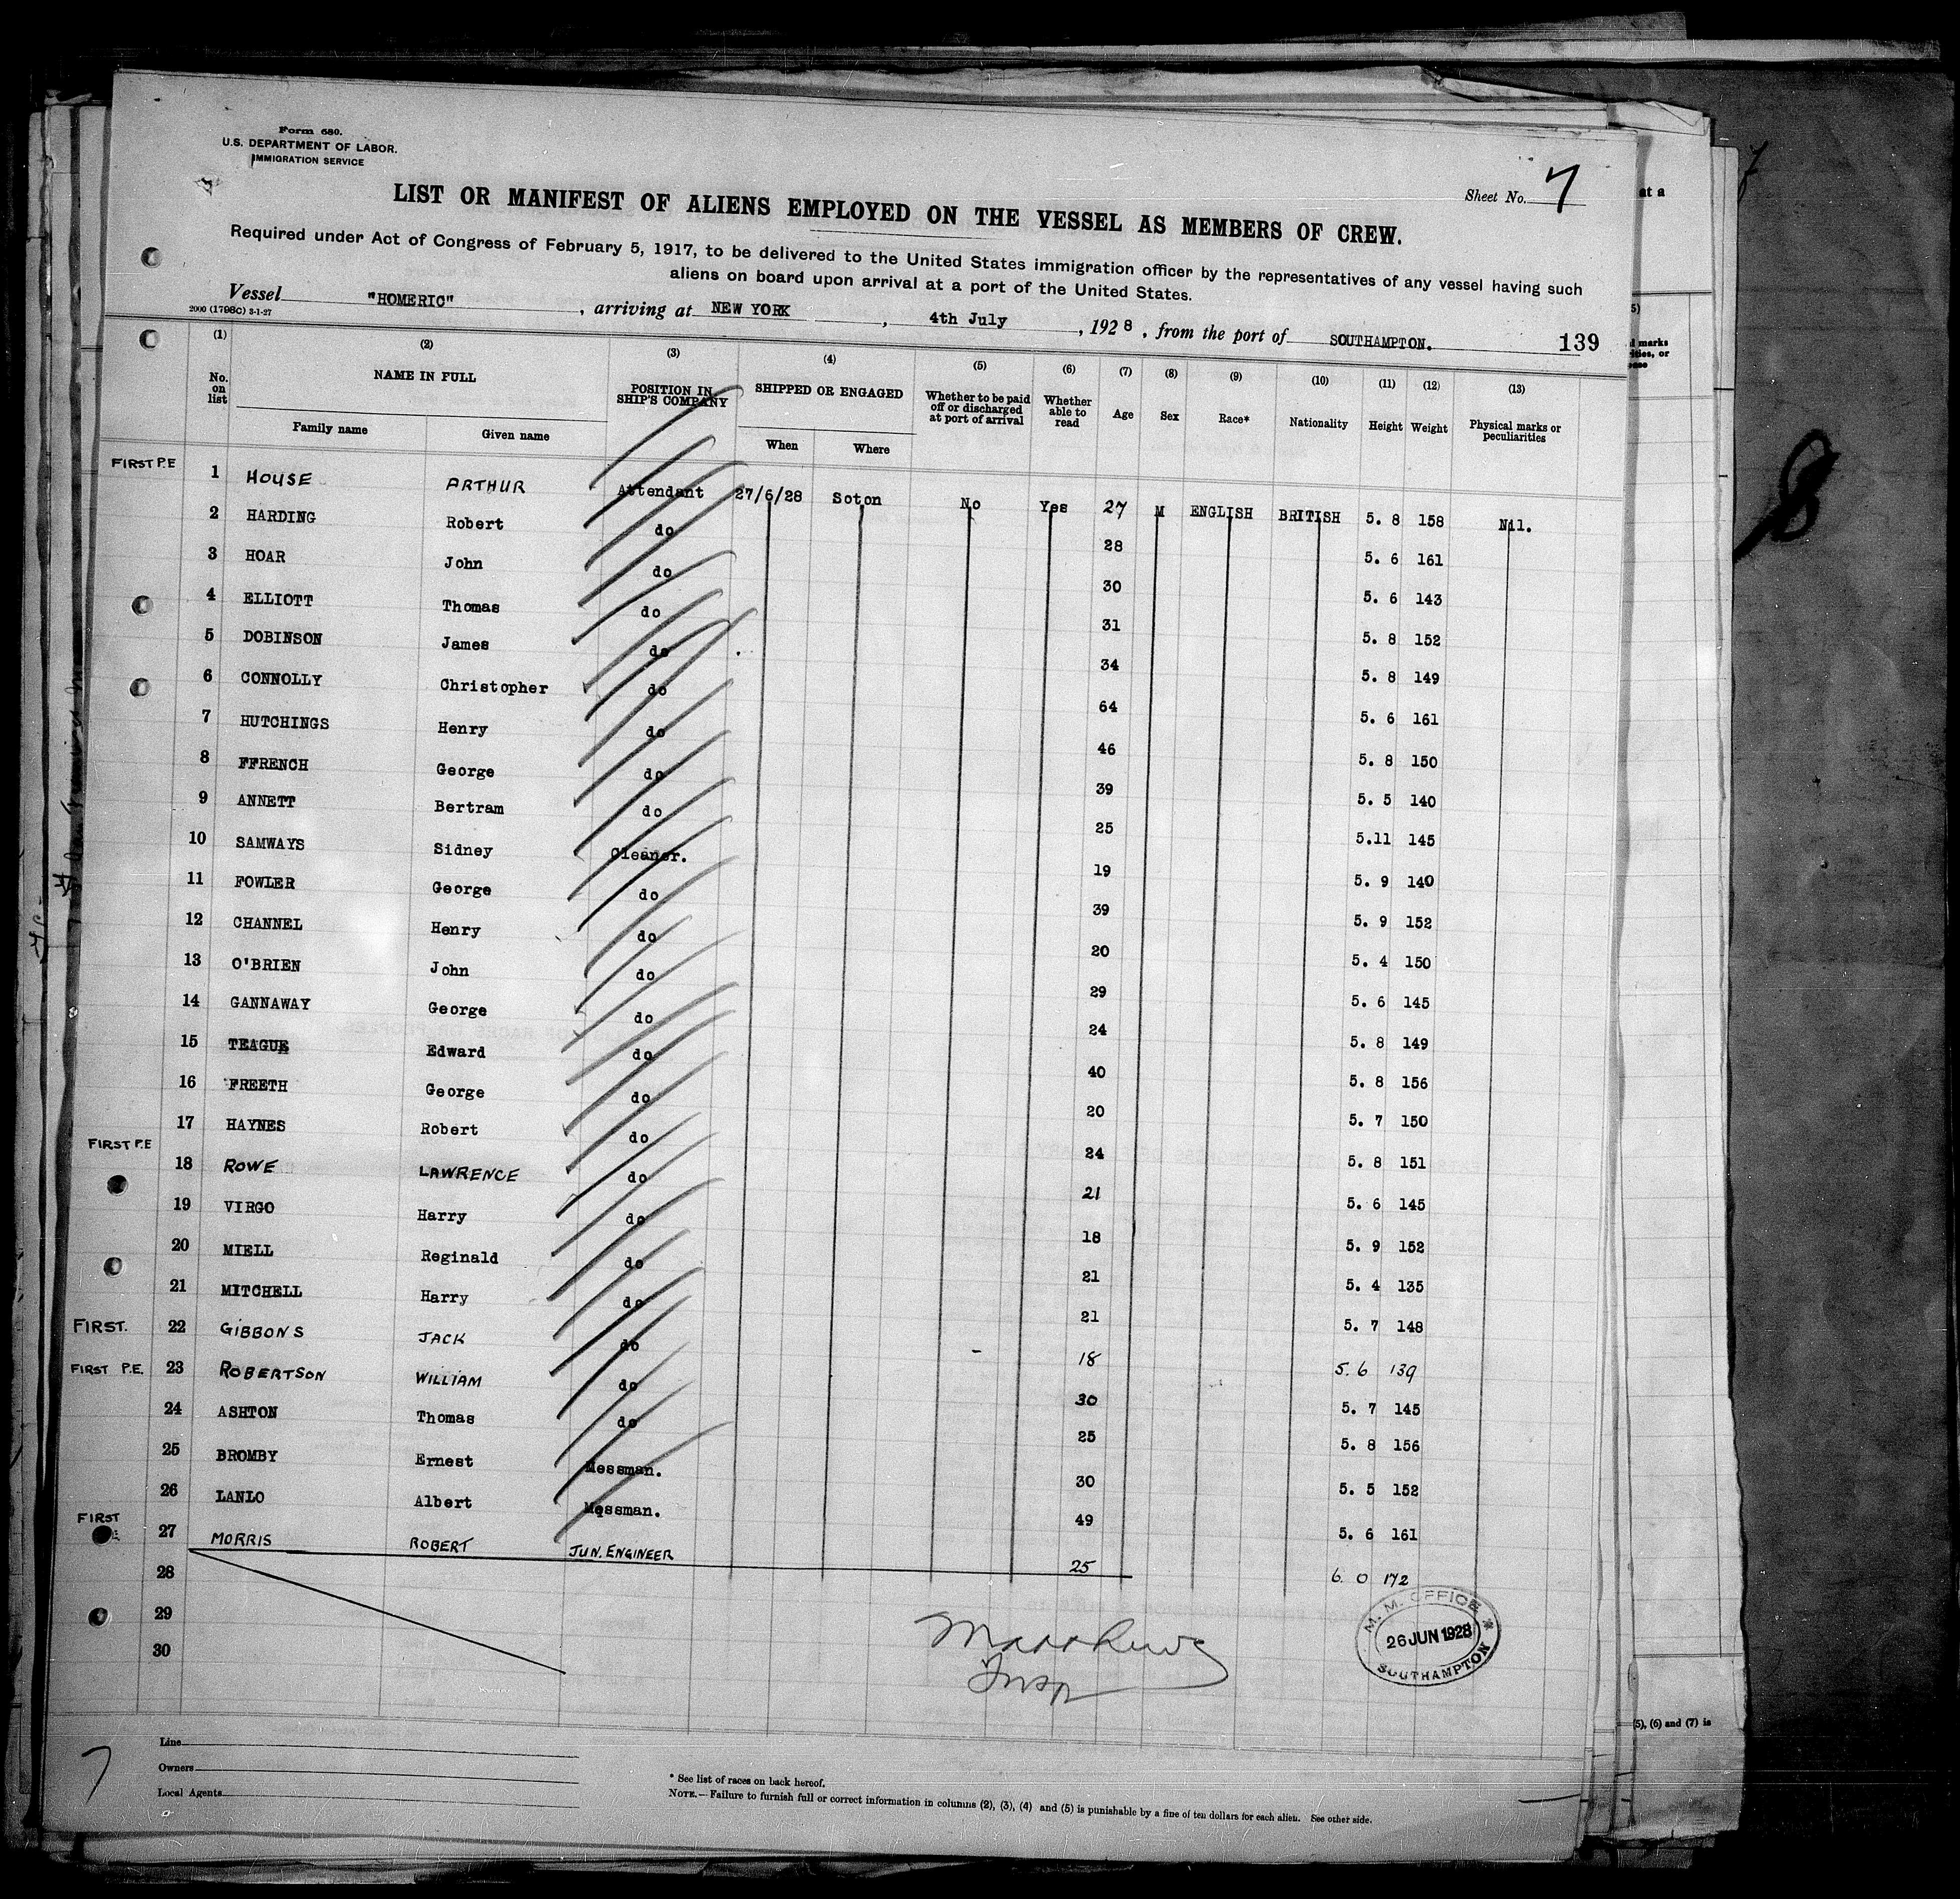 Form 680.
U.S. DEPARTMENT OF LABOR.
IMMIGRATION SERVICE
Sheet No. 7
LIST OR MANIFEST OF ALIENS EMPLOYED ON THE VESSEL AS MEMBERS OF CREW.
Required under Act of Congress of February 5, 1917, to be delivered to the United States immigration officer by the representatives of any vessel having such
aliens on board upon arrival at a port of the United States.
Vessel "HOMERIC", arriving at NEW YORK, 4th July, 1928, from the port of SOUTHAMPTON. 139
2000 (1798c) 3-1-27
(1) (2) (3) (4) (5) (6) (7) (8) (9) (10) (11) (12) (13)
No. on list NAME IN FULL POSITION IN SHIP'S COMPANY SHIPPED OR ENGAGED Whether to be paid off or discharged at port of arrival Whether able to read Age Sex Race* Nationality Height Weight Physical marks or peculiarities
Family name Given name When Where
FIRST P.E 1 HOUSE ARTHUR Attendant 27/6/28 Soton No Yes 27 M ENGLISH BRITISH 5. 8 158 Nil.
2 HARDING Robert do 28 5. 6 161
3 HOAR John do 30 5. 6 143
4 ELLIOTT Thomas do 31 5. 8 152
5 DOBINSON James do 34 5. 8 149
6 CONNOLLY Christopher do 64 5. 6 161
7 HUTCHINGS Henry do 46 5. 8 150
8 FFRENCH George do 39 5. 5 140
9 ANNETT Bertram do 25 5.11 145
10 SAMWAYS Sidney Cleaner. 19 5. 9 140
11 FOWLER George do 39 5. 9 152
12 CHANNEL Henry do 20 5. 4 150
13 O'BRIEN John do 29 5. 6 145
14 GANNAWAY George do 24 5. 8 149
15 TEAGUE Edward do 40 5. 8 156
16 FREETH George do 20 5. 7 150
17 HAYNES Robert do 24 5. 8 151
FIRST P.E 18 ROWE LAWRENCE do 21 5. 6 145
19 VIRGO Harry do 18 5. 9 152
20 MIELL Reginald do 21 5. 4 135
21 MITCHELL Harry do 21 5. 7 148
FIRST. 22 GIBBONS JACK do 18 5. 6 139
FIRST P.E. 23 ROBERTSON WILLIAM do 30 5. 7 145
24 ASHTON Thomas do 25 5. 8 156
25 BROMBY Ernest Messman. 30 5. 5 152
26 LANLO Albert Messman. 49 5. 6 161
FIRST 27 MORRIS ROBERT JUN. ENGINEER 25 6. 0 172
28
29
30
Insp
M. M. OFFICE
26 JUN 1928
SOUTHAMPTON
7
Line
Owners
Local Agents
* See list of races on back hereof.
NOTE.—Failure to furnish full or correct information in columns (2), (3), (4) and (5) is punishable by a fine of ten dollars for each alien. See other side.
at a
(5), (6) and (7) is
8